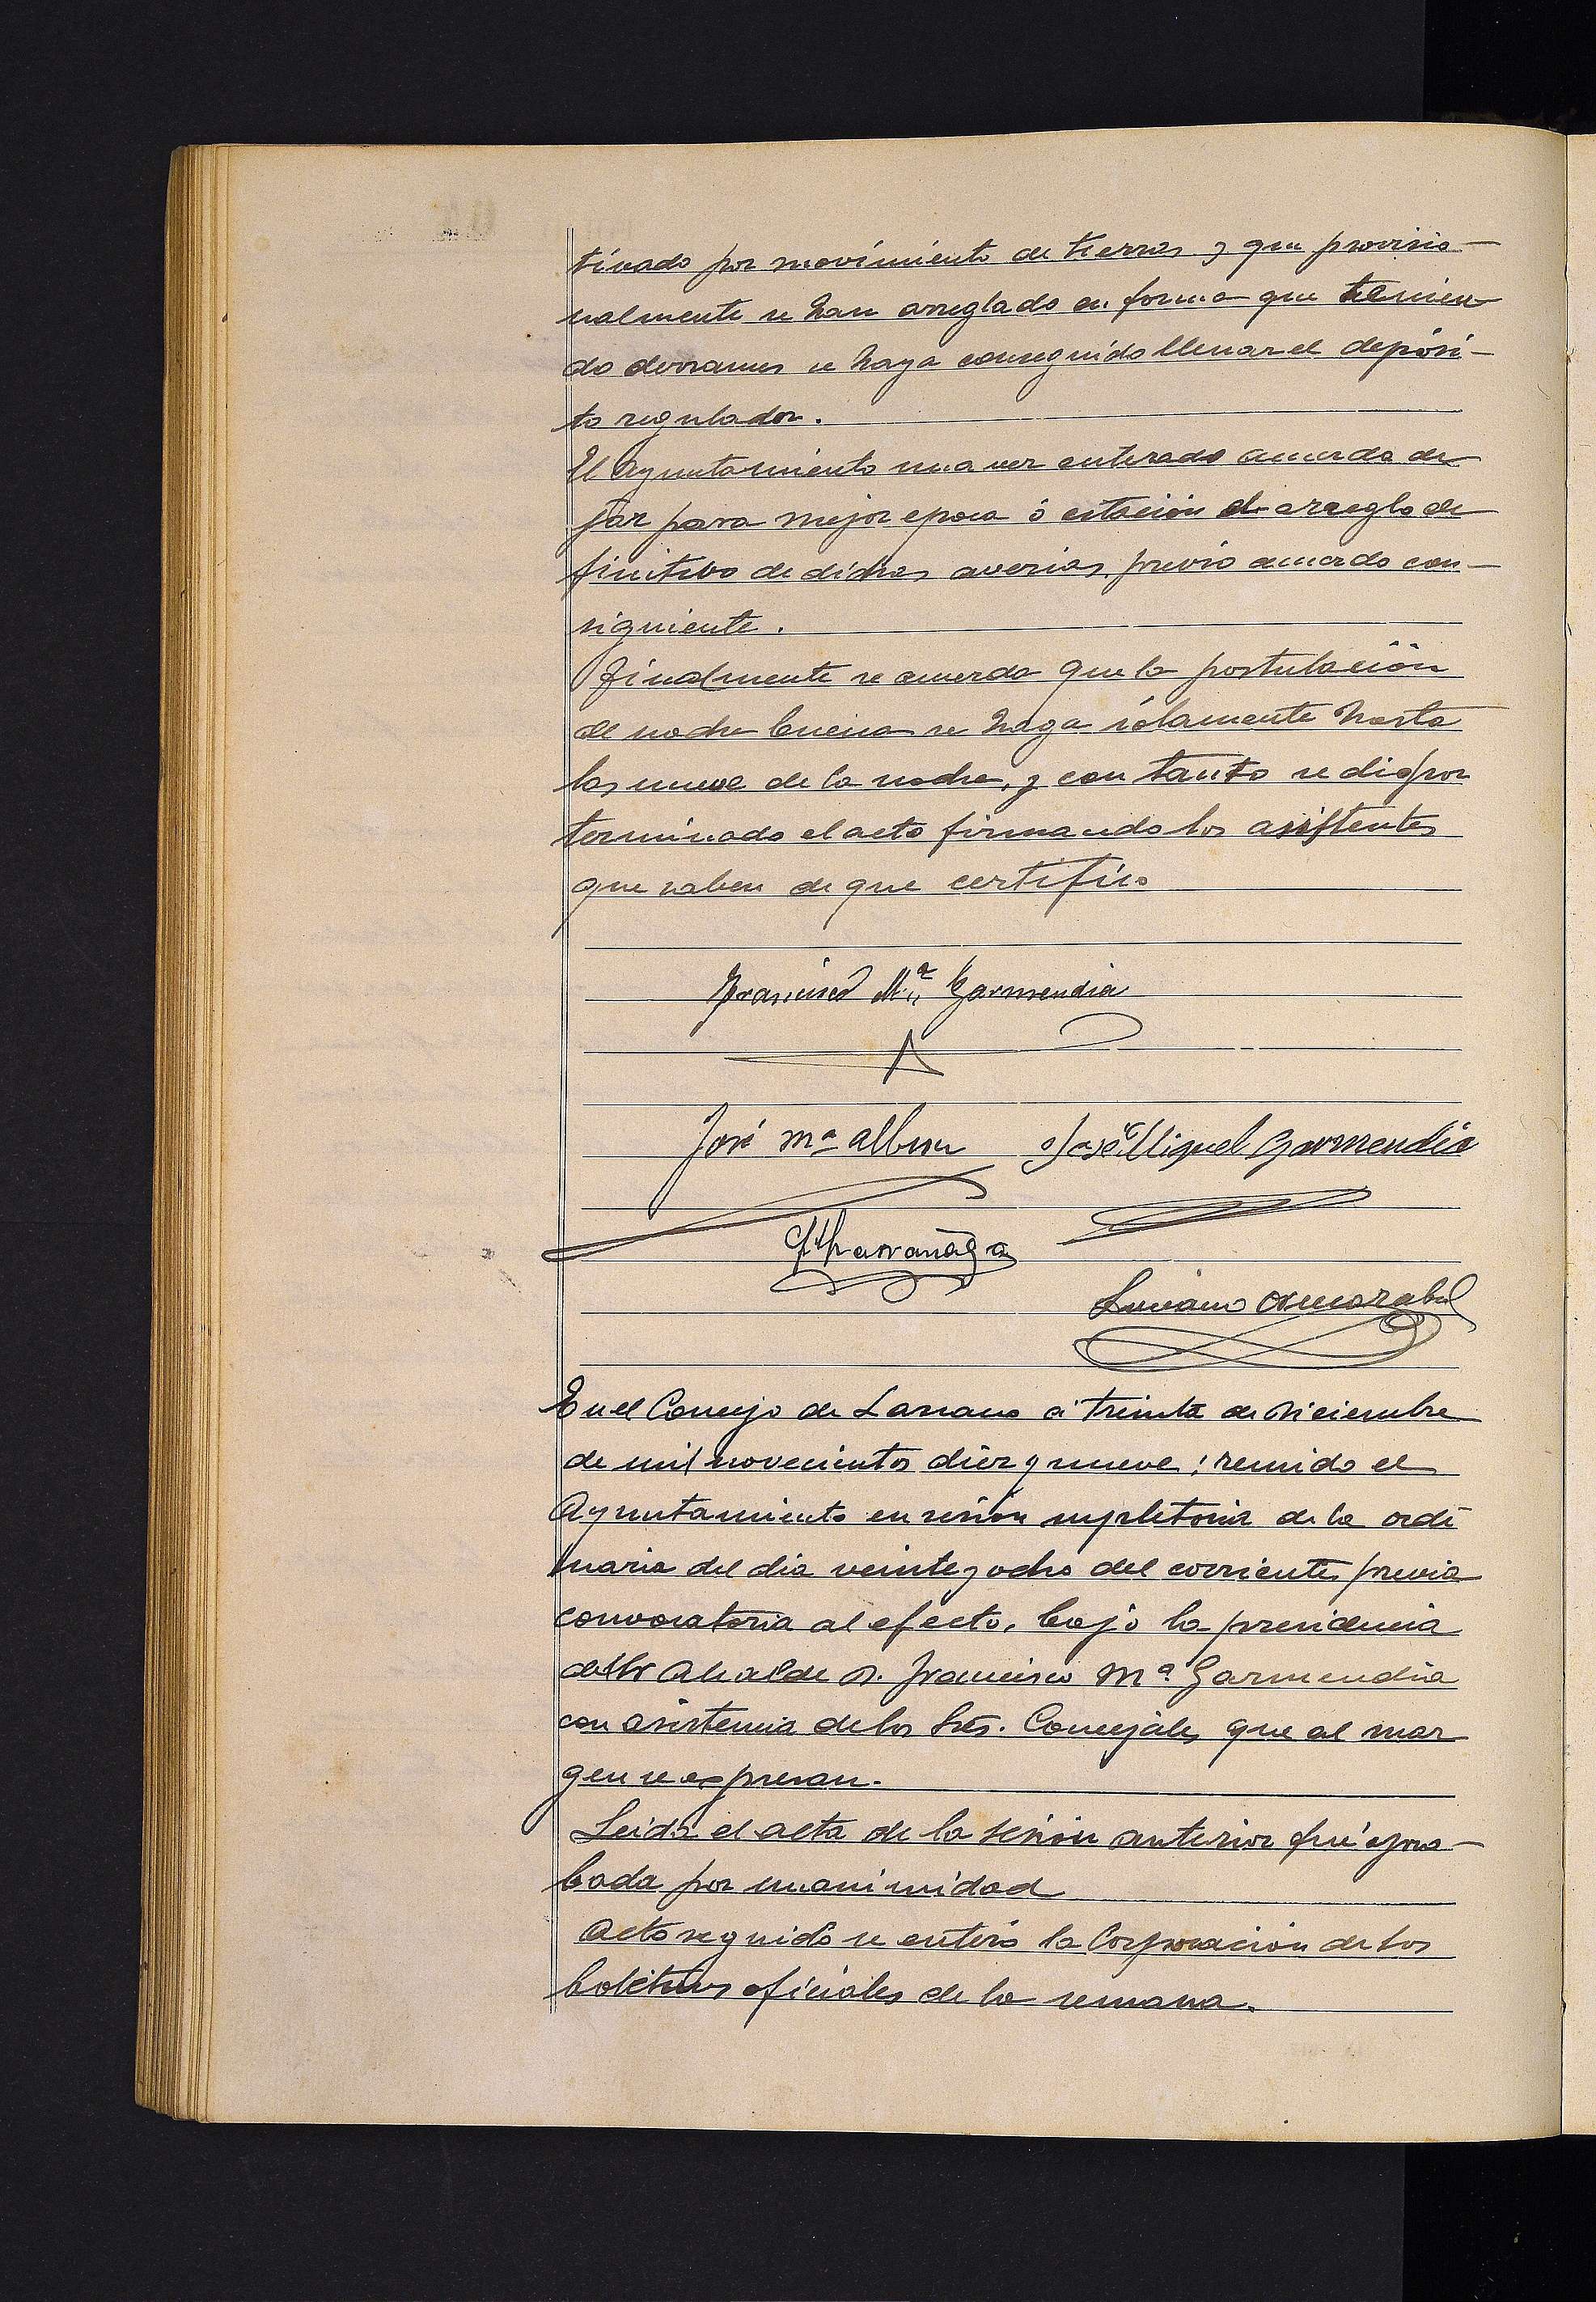 tivado por movimiento de tierras y que provisio-
nalmente se han arreglado en forma que tenien
do derrames se haya conseguido llenar el depósi-
to regulador.
El Ayuntamiento una vez enterado acuerda de
jar para mejor epoca ó estación el arreglo de
finitivo de dichas averias, previo acuerdo con-
siguiente.
Finalmente se acuerda que la postulación
de noche buena se haga sólamente hasta
las nueve de la noche, y con tanto se dio por
terminado el acto firmando los asistentes
que saben de que certifico
Francisco Mª Garmendia
José Mª Albisu José Miguel Garmendia
Larrañaga
Luciano Amezabal
En el Concejo de Lazcano á treinta de Diciembre
de mil novecientos diez y nueve; reunido el
Ayuntamiento en sesión supletoria de la ordi
naria del dia veinte y ocho del corriente, previa
convocatoria al efecto, bajo la presidencia
del Sr Alcalde D. Francisco Mª Garmendia
con asistencia de los Srés. Concejales que al mar
gen se expresan.
Leida el acta de la sesión anterior fué apro-
bada por unanimidad
Acto seguido se enteró la Corporación de los
boletines oficiales de la semana.